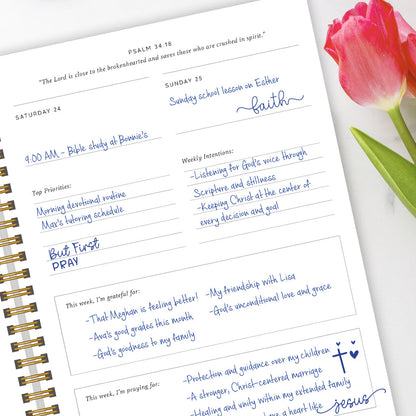 PSALM 34:18
"The Lord is close to the brokenhearted and saves those who are crushed in spirit."
SATURDAY 24
9:00 AM - Bible study at Bonnie's
SUNDAY 25
Sunday school lesson on Esther
faith
Top Priorities:
Morning devotional routine
Max's tutoring schedule
But First
PRAY
Weekly Intentions:
-Listening for God's voice through
Scripture and stillness
-Keeping Christ at the center of
every decision and goal
This week, I'm grateful for:
-That Meghan is feeling better!
-Ava's good grades this month
-God's goodness to my family
-My friendship with Lisa
-God's unconditional love and grace
This week, I'm praying for:
-Protection and guidance over my children
-A stronger, Christ-centered marriage
-Healing and unity within my extended family
have a heart like
jesus